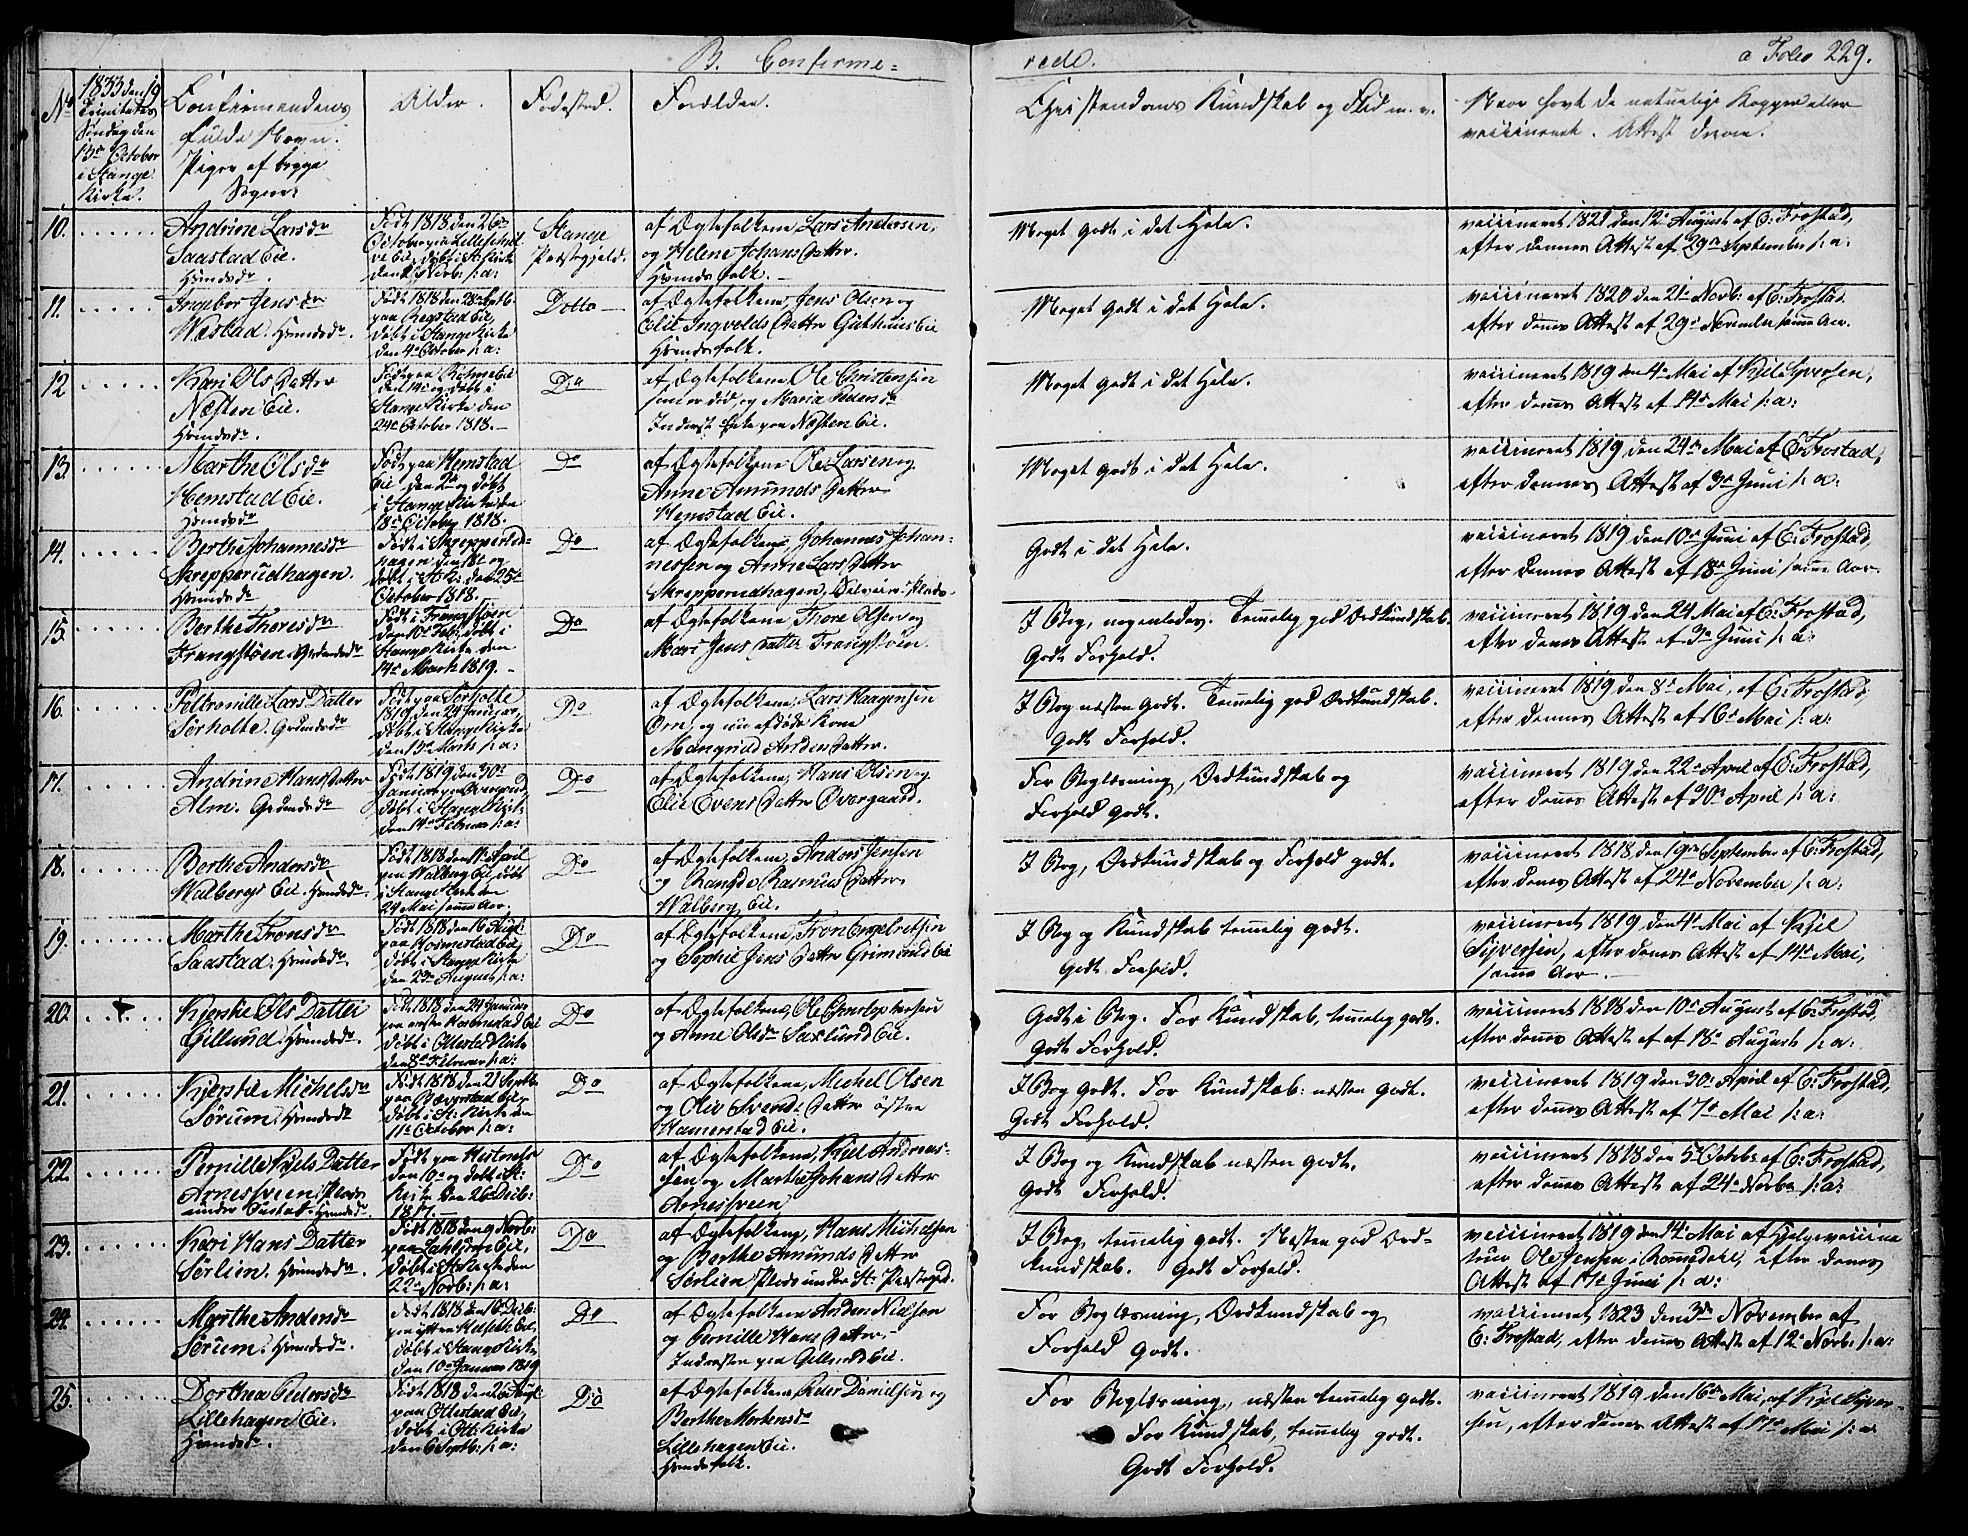 B. Confirme=
rede.
a Folio 229.
No
1833 den 19
Trinitatis
Søndag den
13de October
i Stange
Kirke.
Confirmandens
fulde Navn.
Piger af begge
Sogner
Alder.
Fødested.
Forældre.
Christendoms Kundskab og Flid m. v.
Naar havt de naturlige Kopper eller
vaccineret. Attest derom.
10.
Andrine Larsdr
Saastad Eie.
Huusdr.
Født 1818 den 26de
October paa
Eie, døbt i St: Kirke
den Novb: s: a:
Stange
Præstegjeld.
af Ægtefolkene, Lars Andersen,
og Helene Johans Datter.
Huusfolk.
Meget godt i det Hele.
vaccineret 1821 den 12te August af E: Frostad,
efter dennes Attest af 29de September s: a:
11.
Ingebor Jensdr
Huusdr.
Født 1818 den 28de Septb:
paa Eie,
døbt i Stange Kirke
den 4de October s: a:
Ditto
af Ægtefolkene, Jens Olsen og
Eli Ingvolds Datter Guthuus Eie
Huusfolk.
Meget godt i det Hele.
vaccineret 1820 den 21de Novb: af E: Frostad
efter dennes Attest af 29de November samme Aar.
12
Kari Ols Datter
Næsten Eie.
Huusdr.
Født paa Eie
den 14de og døbt i
Stange Kirke den
24de October 1818.
Do
af Ægtefolkene, Ole Christensen
som er død, og Maria Pedersdr
Inderst paa Næsten Eie.
Meget godt i det Hele.
vaccineret 1819 den 4de Mai af Kjel Syversen,
efter dennes Attest af 14de Mai s: a:
13.
Marthe Olsdr
Hemstad Eie.
Huusdr
Født paa Hemstad
Eie, den 2den og døbt
i Stange Kirke den
18de October 1818.
Do
af Ægtefolkene Ole Larsen og
Anne Amunds Datter
Hemstad Eie.
Meget godt i det Hele.
vaccineret 1819 den 24de Mai af E: Frostad,
efter dennes Attest af 3de Juni s: a:
14.
Berthe Johannesdr
Skrepperudhagen.
Huusdr
Født i Skrepperud=
hagen den 18de og
døbt i St: K: den 25de
October 1818.
Do
af Ægtefolkene Johannes Johan=
nessen og Anne Lars Datter
Skrepperudhagen,
Godt i det Hele.
vaccineret 1819 den 10de Juni af E: Frostad,
efter dennes Attest af 18de Juni samme Aar.
15.
Berthe Thoresdr
Frengstøen. Gaardmdr
Født i Frengstøen
den 10de Feb: døbt i
Stange Kirke den
14de Marts 1819.
Do
af Ægtefolkene Thore Olsen og
Mari Jens Datter Frengstøen.
I Bog, nogenledes. Temmelig god Ordkundskab.
Godt Forhold.
vaccineret 1819 den 24 Mai af E: Frostad,
efter dennes Attest af 3de Juni s: a:
16.
Peltronille Lars Datter
Sørholte. Gaardmdr
Født paa Sørholte
1819, den 24 Januar,
døbt i Stange Kirke
den Marts s: a:
Do
af Ægtefolkene, Lars Haagensen
Orn, og nu afdøde Kone
Mangrid Anders Datter.
I Bog næsten godt. Temmelig god Ordkundskab.
Godt Forhold.
vaccineret 1819 den 8de Mai, af E: Frostad,
efter dennes Attest af 16de Mai s: a:
17.
Andrine Hans Datter
Alm. Gaardmdr
Født 1819 den 30te
Januar paa
døbt i Stange Kirke
den 14de Februar s: a:
Do
af Ægtefolkene, Hans Olsen og
Elie Evens Datter Øvergaard.
For Boglæsning, Ordkundskab og
Forhold godt.
vaccineret 1819 den 22de April af E: Frostad,
efter dennes Attest af 30te April s: a:
18.
Berthe Andersdr
Walbergs Eie. Huusdr.
Født 1818 den April
paa Walberg Eie, døbt
i Stange Kirke den
24 Mai samme Aar.
Do
af Ægtefolkene, Anders Jensen
og Rasmus Datter
Walberg Eie.
I Bog, Ordkundskab og Forhold godt.
vaccineret 1818 den 19de September af E: Frostad,
efter dennes Attest af 24de November s: a:
19.
Marthe Tronsdr
Saastad. Huusdr.
Født 1818 den 16 Aug:
paa Hosmestad Eie,
døbt i Stange Kirke
den 23de August s: a:
Do
af Ægtefolkene, Tron Engebretsen
og Sophie Jens Datter Grimerud Eie
I Bog og Kundskab temmelig godt.
Godt Forhold.
vaccineret 1819 den 4de Mai af Kjel
Syversen, efter dennes Attest af 14de Mai,
samme Aar.
20.
Kjerstie Ols Datter
Gillund. Huusdr.
Født 1818 den 24 Januar
paa Hosmestad Eie
døbt i Ottestad Kirke
den 8de Februar s: a:
Do
af Ægtefolkene, Ole
og Anne Olsdr Saxlund Eie.
Godt i Bog. For Kundskab, temmelig godt.
Godt Forhold.
vaccineret 1818 den 10de August af E: Frostad,
efter dennes Attest af af 18de August s: a:
21.
Kjerstie Michelsdr
Sørum. Huusdr
Født 1818 den 21 Septbr
paa Eie,
døbt i St: Kirke den
11te October s: a:
Do
af Ægtefolkene, Michel Olsen
og Oliv Svends Datter østre
Hamerstad Eie.
I Bog godt. For Kundskab: næsten godt.
Godt Forhold.
vaccineret 1819 den 30te April af E: Frostad,
efter dennes Attest af 7de Mai s: a:
22.
Pernille Kjels Datter
Arnesveen, Plads
under Huusdr.
Født paa
den 10de og døbt i St:
Kirke den 26de Decb:
1817.
Do
af Ægtefolkene, Kjel Andreas=
sen og Marthe Johans Datter
Arnesveen
I Bog og Kundskab næsten godt.
Godt Forhold.
vaccineret 1818 den 5te Octobr: af E: Frostad,
efter dennes Attest af 24de Novbr s: a:
23.
Kari Hans Datter
Sørlien. Huusdr.
Født 1818 den 9 Novb:
paa Eie,
døbt i St: Kirke den
22de Novb: s: a:
Do
af Ægtefolkene, Hans Michelsen
og Berthe Amunds Datter
Sørlien Plads under St: Præstegrd.
I Bog, temmelig godt. Næsten god Ord=
kundskab. Godt Forhold.
vaccineret 1819 den 14de Mai af Hjelpevaccina
teur Ole Jensen i Romedahl, efter dennes
Attest af 17de Juni s: a:
24.
Marthe Andersdr
Sørum. Huusdr.
Født 1818 den 16 Decb:
paa Eie,
døbt i Stange Kirke
den 10de Januar 1819
Do
af Ægtefolkene Anders Nielsen
og Pernille Hans Datter.
Inderster paa Gillund Eie.
For Boglæsning, Ordkundskab og
Forhold godt.
vaccineret 1823 den 3de November af
E: Frostad, efter dennes Attest af 12te Novb: s: a:
25.
Dorthea Pedersdr
Lillehagen Eie.
Huusdr.
Født 1818 den 26 Aug:
paa Ottestad Eie,
døbt i Ott: Kirke
den 6 Septb: s: a:
Do
af Ægtefolkene, Peder Danielsen og
Berthe Mortensdr
Lillehagen Eie.
Huusfolk.
For Boglæsning, næsten temmelig godt.
For Kundskab, temmelig godt.
Godt Forhold.
vaccineret 1819 den 16de Mai, af Kjel Syver=
sen, efter dennes Attest af 17de Mai s: a: